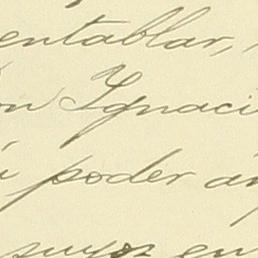 entablar,
on Ignaci
á poder a
suyos en